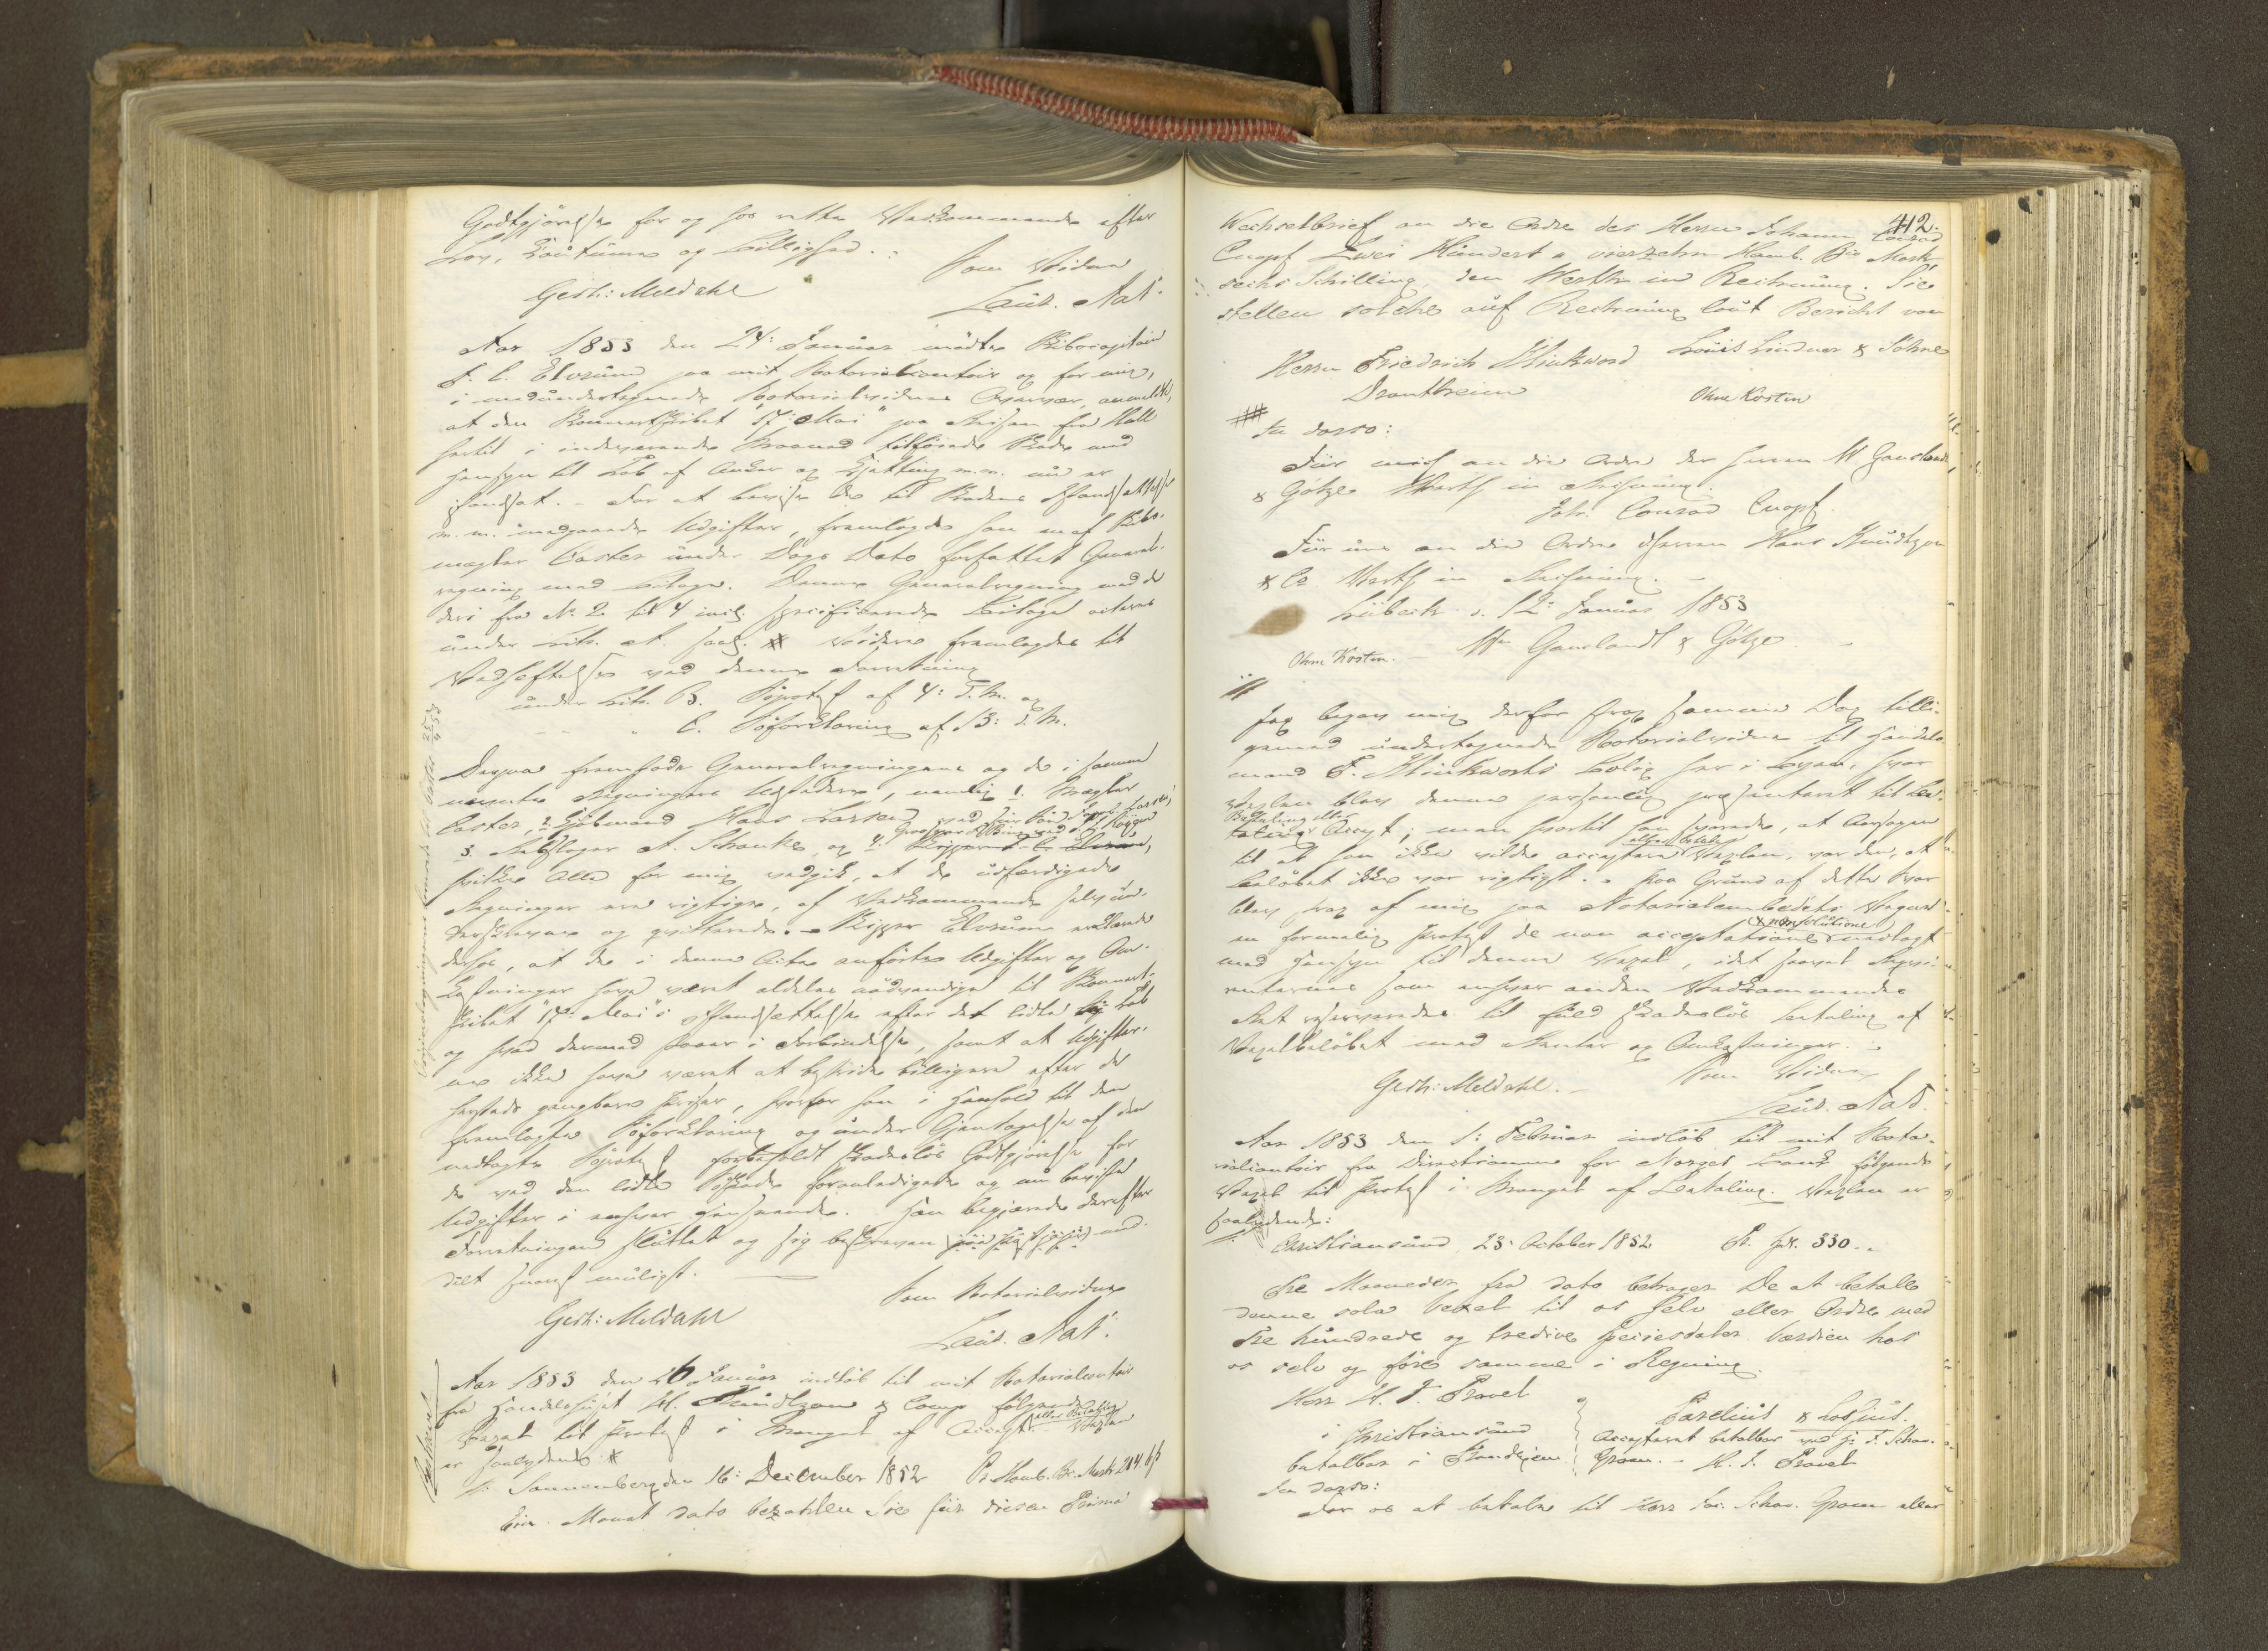 Godtgjørelse for og hos rette Vedkommende efter
Lov, Coutume og Billighed.
Som Vidner
Gerh: Meldahl
Laur. Aas.
Aar 1853 den 24: Januar mødte Skibscapitain
F. C. Elvrum paa mit Notarialcontoir og for mig,
i medundertegnede Notarialvidners Overvær, anmeldte,
at den Skonnertskibet "17: Mai" paa Reisen fra
hertil i indeværende Maaned tilføiede Skade med
Hensyn til Tab af Anker og Kjetting m.m. nu er
istandsat. - For at bevise de til Skadens Istandsættelse
m. m. medgaaede Udgifter, fremlagde han en af Skibs-
mægler Caster under Dags Dato forfattet General-
regning med Bilage. Denne Generalregning med de
deri fra No 2 til 4 incl. specificerede Bilage acteres
under Litr. A. Videre fremlagdes til
Vedheftelse ved denne Forretning
under Litr. B. Søprotest af 4: d. M. og
" C. Søforklaring af 13: d. M.
Derpaa fremstode Generalregningens og de i samme
nævnte Regningers Udstædere, nemlig 1. Mægler
Caster, 2. Kjøbmand Hans Larsen ved sin Søn Larsen,
3. Rebslager A. Schanke og 4. Skipper F. C. Elvrum,
hvilke Alle for mig vedgik, at de udfærdigede
Regninger ere rigtige, af Vedkommende selv un-
derskrevne og qvitterede. - Skipper Elvrum erklærede
derhos, at de i denne Acte anførte Udgifter og Om-
kostninger have været aldeles nødvendige til Skonnert-
skibet "17: Mai"s Istandsættelse efter det lidte Tab
og hvad dermed staaer i Forbindelse, samt at Udgifter-
ne ikke have været at bestride billigere efter de
herstede gangbare Priser, hvorfor han i Henhold til den
fremlagte Søforklaring og under Gjentagelse af den
nedlagte Søprotest forbeholdt skadesløs Godtgjørelse for
de ved den lidte Søskade foranledigede og nu beviste
Udgifter i enhver Henseende. Han begjærede derefter
Forretningen sluttet og sig beskreven med-
delt snarest muligt.
Som Notarialvidner
Gerh: Meldahl
Laur. Aas.
Aar 1853 den 26 Januar indløb til mit Notarialcontoir
fra Handelshuset H. Knudtzon & Comp følgende
Vexel til Protest i Mangel af Accept eller Betaling. Vexlen
er saalydende
Sonnenberg den 16: December 1852 Pr Hamb. Bc. Mark 214. 6 ß
Ein Monat dato bezahlen Sie für diesen Prima
412.
Wechselbrief an die Ordre des Herrn Johann Conrad
Cnopf Zwei Hundert u vierzehn Hamb. Bco Mark
sechs Schilling, den Werth in Rechnung. Sie
stellen solche auf Rechnung laut Bericht von
Louis Lindner & Söhne
Herrn Friedrich Klinkword
Drontheim
Ohne Kosten
In dorso:
Für mich an die Ordre der Herren M Ganslandt
& Götze Werth in Rechnung.
Joh. Conrad Cnopf.
Für uns an die Ordre Herren Hans Knudtzon
& Co Werth in Rechnung. -
Lübeck d. 12: Januar 1853
Ganslandt & Götze
Ohne Kosten.
Jeg begav mig derfor strax samme Dag tilli-
gemed undertegnede Notarialvidner til Handels-
mand F. Klinkwords Bolig her i Byen, hvor
Vexlen blev denne personlig præsenteret til
Betaling eller Accept; men hvortil han svarede, at Aarsagen
til at han ikke vilde acceptere eller betale Vexlen, var den, at
Beløbet ikke var rigtigt. - Paa Grund af dette Svar
blev strax af mig paa Notarialembedets Vegne
en formelig Protest de non acceptatione & non solutione nedlagt
med Hensyn til denne Vexel, idet saavel
som enhver anden Vedkommende
Ret reserveredes til fuld skadesløs Betaling af
Vexelbeløbet med Renter og Omkostninger. -
Som Vidner
Gerh: Meldahl. -
Laur. Aas.
Aar 1853 den 1: Februar indløb til mit Nota-
rialcontoir fra Directionen for Norges Bank følgende
Vexel til Protest i Mangel af Betaling. Vexlen er
saalydende:
Christiansund 23: October 1852 Pr. Spd. 330.
Tre Maaneder fra dato behager De at betale
denne sola Vexel til os selv eller Ordre med
Tre hundrede og tredive Speciesdaler Værdien hos
os selv og føre samme i Regning
Herr H. J. Pravel
i Christiansund
betalbar i Trondhjem
Parelius & Lossius.
Accepteret betalbar ved J: F. Schav.
Gram. - H. J. Pravel
In dorso:
For os at betale til Herr Schav. Gram eller